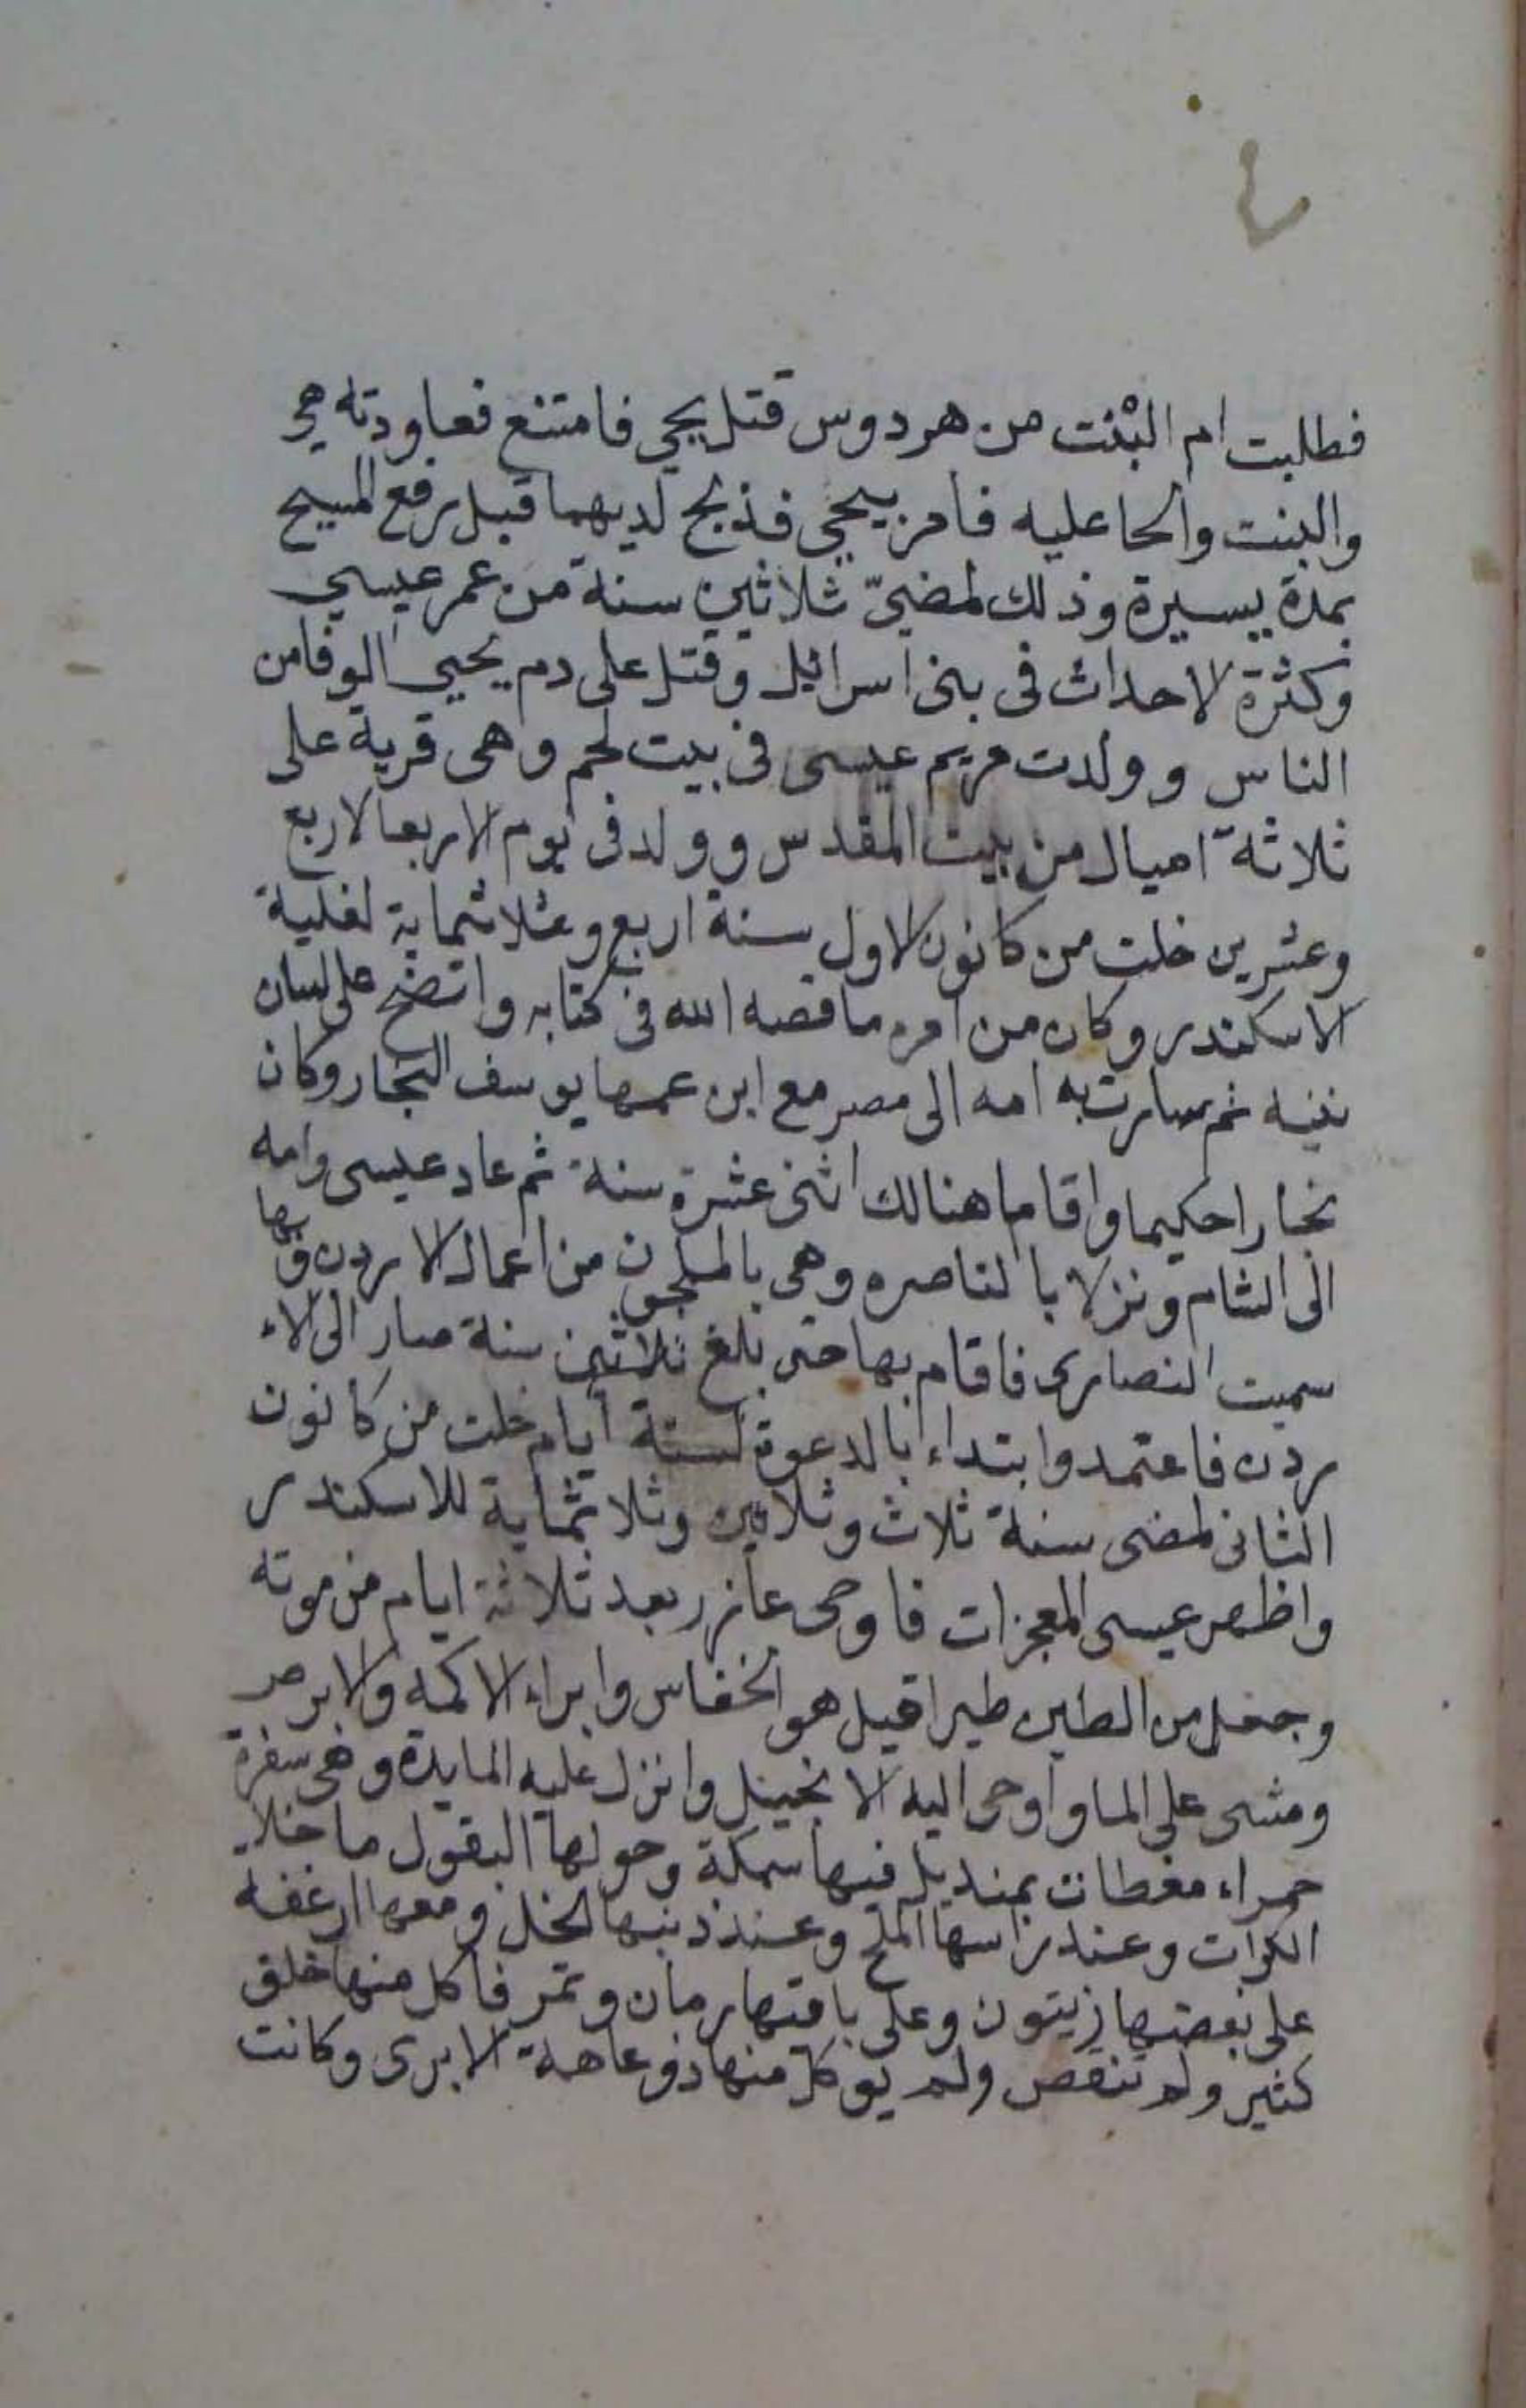 ٤
فطلبت ام البنْت من هردوس قتل يحيى فامتنع فعاودته هي
والبنت والحا عليه فامر بيحيى فذبح لديهما قبل رفع المسيح
بمدة يسيرة وذلك لمضيّ ثلاثين سنة من عمر عيسى
وكثرة الاحداث فى بنى اسرائيل وقتل على دم يحيى الوفا من
الناس وولدت مريم عيسى فى بيت لحم وهى قرية على
ثلاثة اميال من بيت المقدس وولد فى يوم الاربعا لاربع
وعشرين خلت من كانون الاول سنة اربع وثلاثماية لغلبة
الاسكندر وكان من امره ما قصه الله فى كتابه واتضح على لسان
نبيه ثم سارت به امه الى مصر مع ابن عمها يوسف النجار وكان
نجارا حكيما واقاما هنالك اثنى عشرة سنة ثم عاد عيسى وامه
الى الشام ونزلا بالناصره وهى بالملجون من اعمال الاردن وبها
سميت النصارى فاقام بها حتى بلغ ثلاثين سنة سار الى الا
ردن فاعتمد وابتداء بالدعوة لستة ايام خلت من كانون
الثانى لمضى سنة ثلاث وثلاثين وثلاثماية للاسكندر
واظهر عيسى المعجزات فاوحى عازر بعد ثلاثة ايام من موته
وجعل من الطين طيرا قيل هو الخفاس وابراء الاكمه والابرص
ومشى على الما واوحى اليه الانجيل وانزل عليه المايدة وهى سفرة
حمراء مغطات بمنديل فيها سمكة وحولها البقول ما خلا
الكرات وعند راسها الملح وعند ذنبها الخل ومعها ارغفة
على بعضها زيتون وعلى باقتها رمان وتمر فاكل منها خلق
كثير ولم تنقص ولم يوكل منها ذو عاهة الا برى وكانت